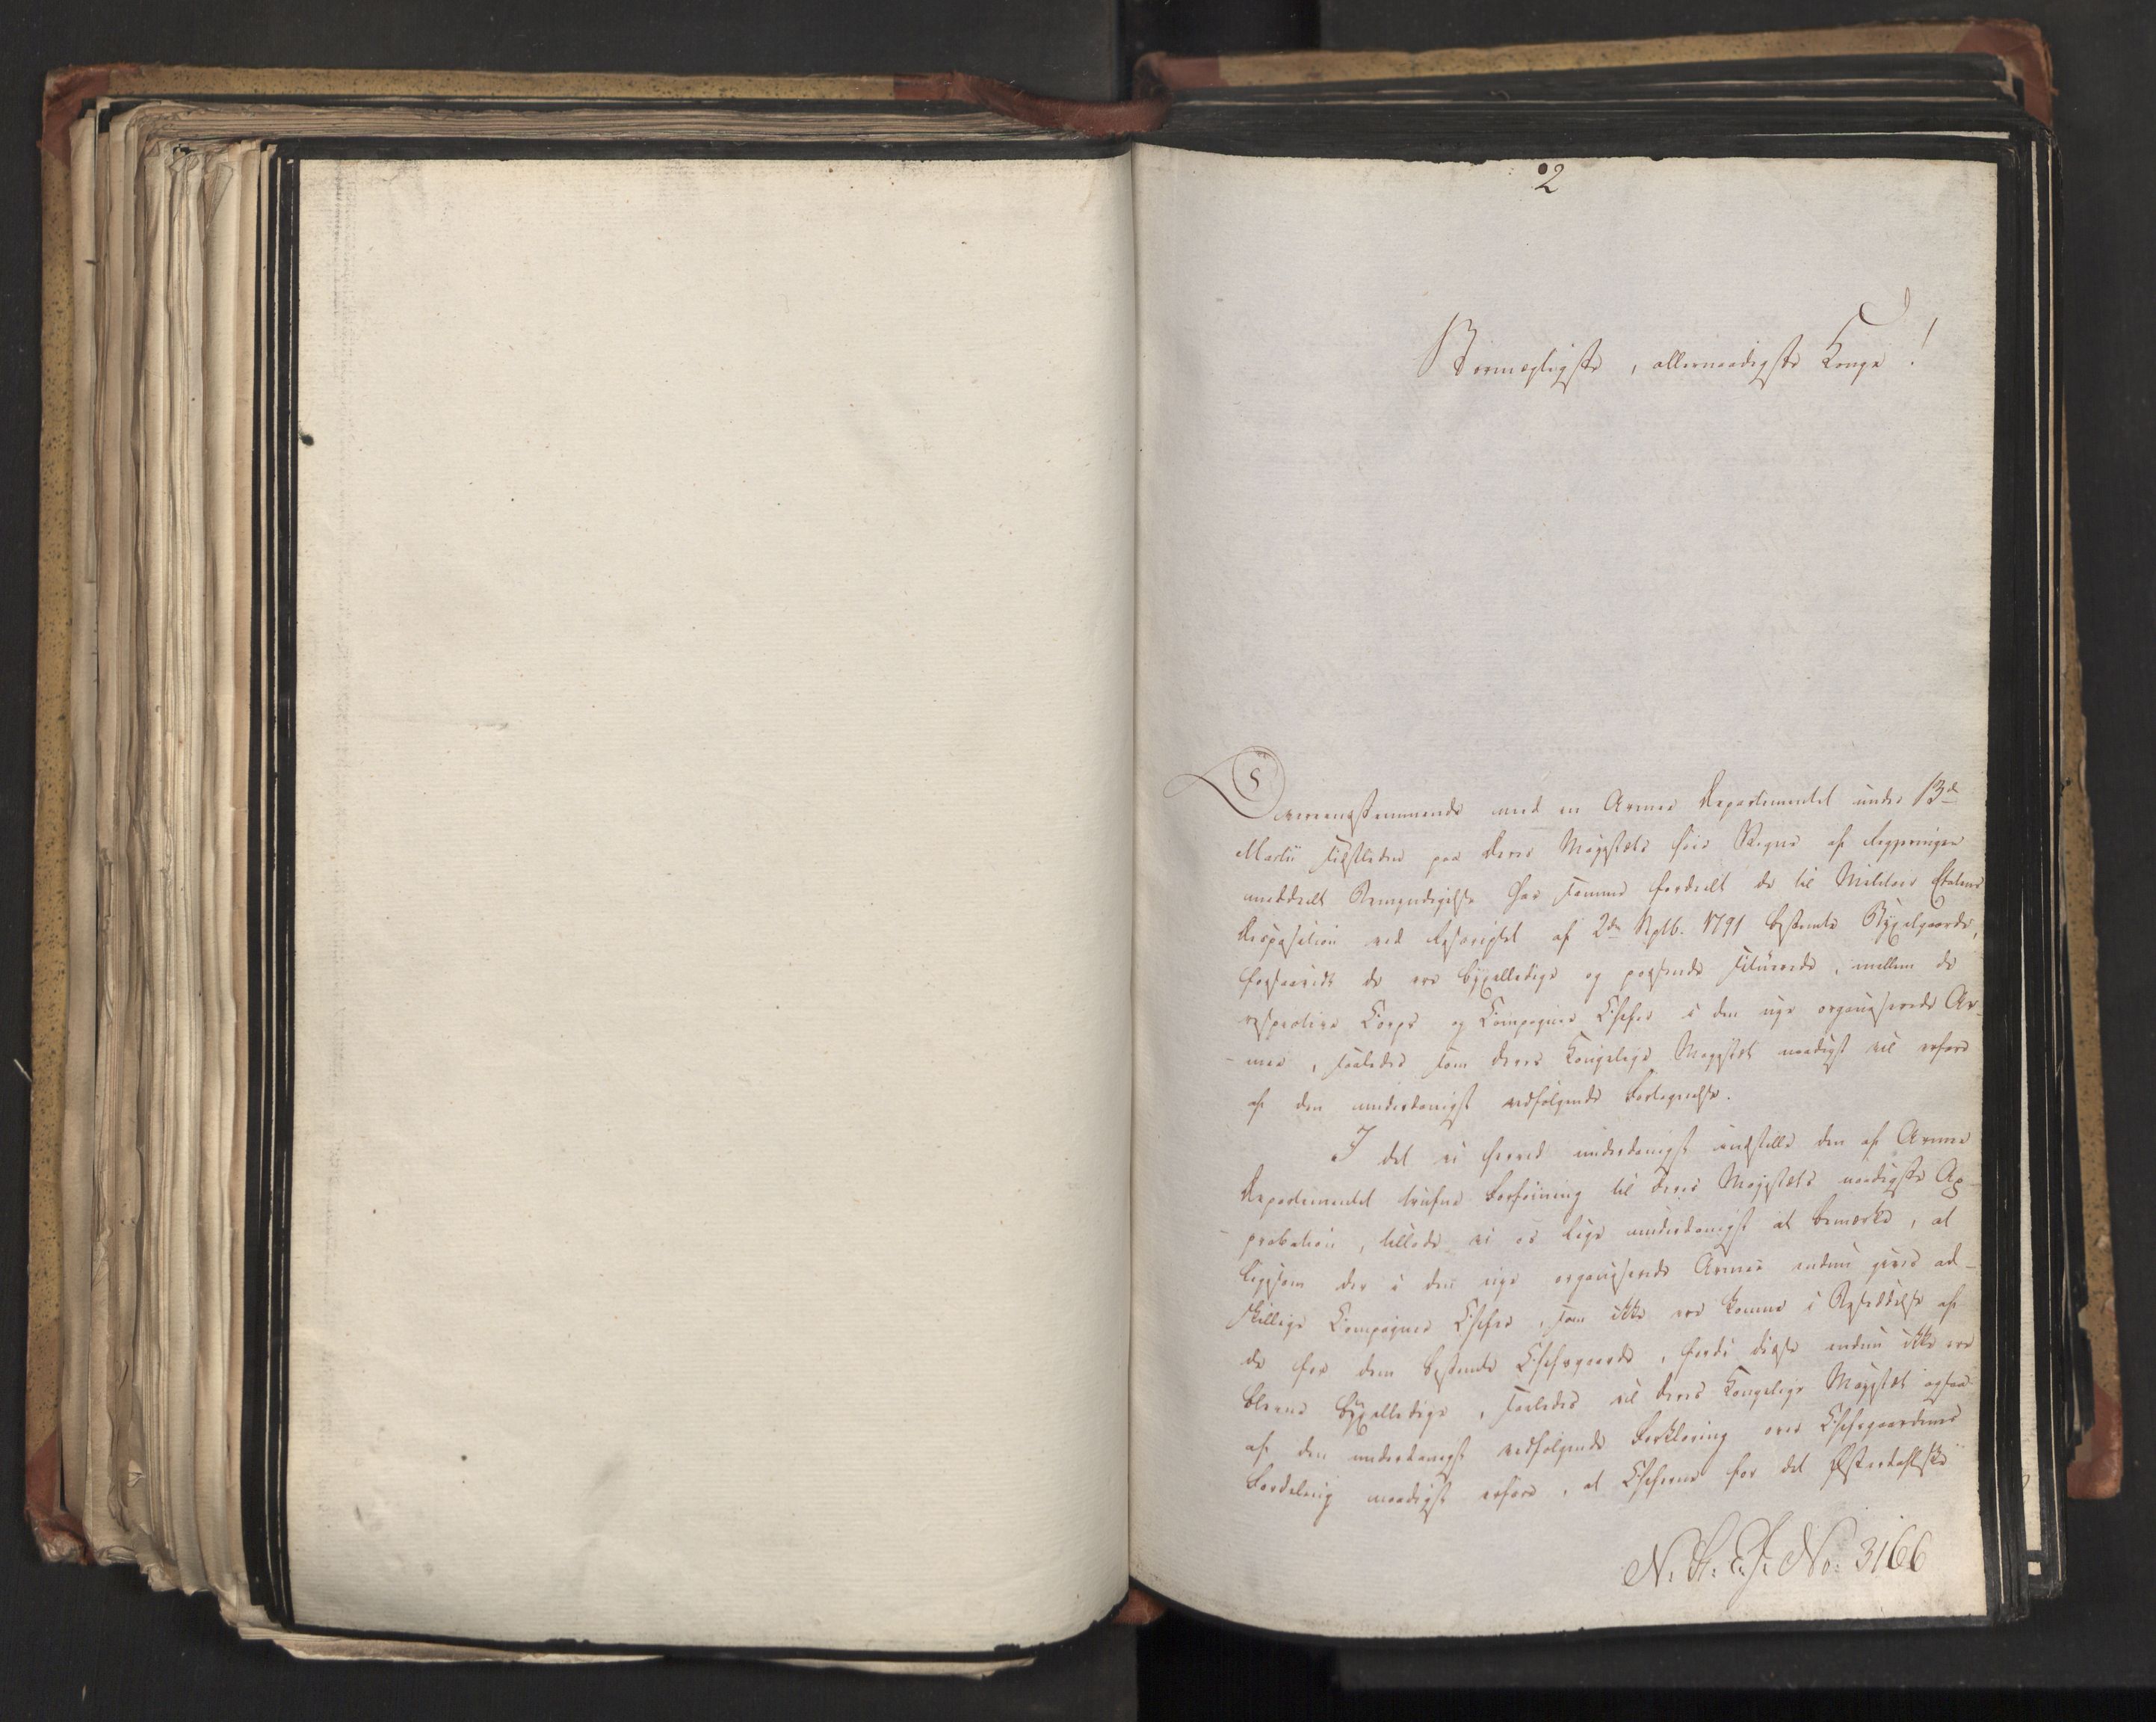 2
Stormægtigste, allernaadigste Konge!
Overeensstemmende med en Armee Departementet under 13de
Martii sidstleden paa Deres Majestæts høie Vegne af Regjeringen
meddeelt Bemyndigelse har samme fordeelt de til Militair Etatens
Disposition ved Rescriptet af 2den Septb. 1791 bestemte Bygselgaarde,
forsaavidt de ere bygselledige og passende situerede, mellem de
respective Corps og Compagnie Chefer i den nye organiserede Ar-
-mee, saaledes som Deres Kongelige Majestæt naadigst vil erfare
af den underdanigst vedfølgende Fortegnelse.
I det vi herved underdanigst indstille den af Armee
Departementet trufne Forføining til Deres Majestæts naadigste Ap-
-probation, tillade vi os lige underdanigst at bemærke, at
ligesom der i den nye organiserede Armee endnu gives ad-
skillige Compagnie Chefer, som ikke ere komne i Besiddelse af
de for dem bestemte Chefsgaarde, fordi disse endnu ikke ere
blevne bygselledige, saaledes vil Deres Kongelige Majestæt ogsaa
af den underdanigst vedfølgende Forklaring over Chefsgaardenes
Fordeling naadigst erfare, at Cheferne for det Østerdalske
N. S. E. J. No: 3166